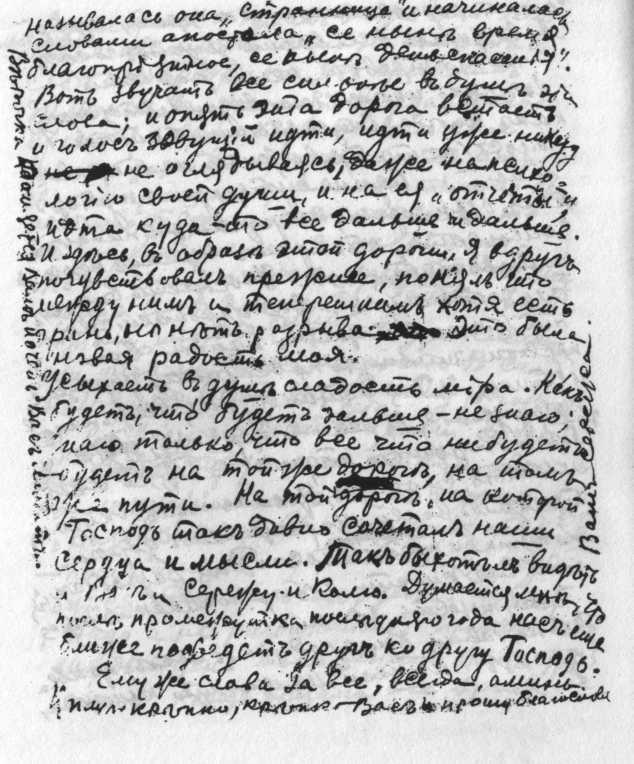 называлась она „Странница" и начиналась
словами апостола „се нынѣ время
благопрiятное, се нынѣ день спасенiя".
Вотъ звучатъ все сильнѣе въ душѣ эти
слова; и опять эта дорога встаетъ
и голосъ зовущiй идти, идти уже никуда
не оглядываясь, даже на психо-
логiю своей души, и на ея „отчеты" и
идти куда-то все дальше и дальше.
И здѣсь, въ образѣ этой дороги, я вдругъ
почувствовалъ прежнее, понялъ что
между нимъ и теперешнимъ хотя есть
грань, но нѣтъ разрыва. Это была
новая радость моя.
Усыхаетъ въ душѣ сладость мiра. Какъ
будетъ, что будетъ дальше – не знаю;
знаю только, что все что ни будетъ
будетъ на той же дорогѣ, на томъ
же пути. На той дорогѣ, на которой
Господь такъ давно сочеталъ наши
сердца и мысли. Такъ бы хотѣлъ видѣть
и Сережу и Колю. Думается мнѣ, что
послѣ промежутка последняго года насъ еще
ближе подведетъ другъ ко другу Господь.
Ему же слава за все, всегда, аминь.
крѣпко, крѣпко Васъ и прошу благослов
Васъ
Вашъ